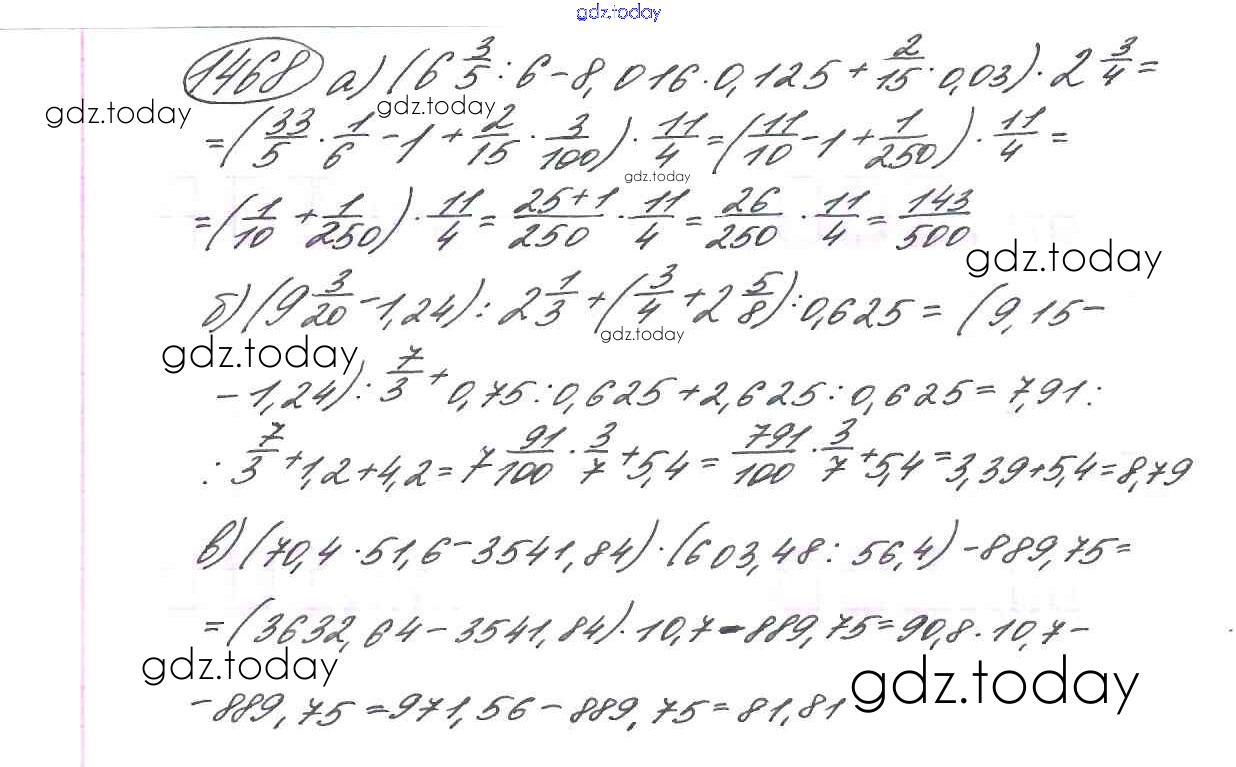 gdz.today
1468 а) (6 3/5 : 6 - 8,016 · 0,125 + 2/15 · 0,03) · 2 3/4 =
gdz.today gdz.today
= (33/5 · 1/6 - 1 + 2/15 · 3/100) · 11/4 = (11/10 - 1 + 1/250) · 11/4 =
gdz.today
= (1/10 + 1/250) · 11/4 = 25+1/250 · 11/4 = 26/250 · 11/4 = 143/500
gdz.today
б) (9 3/20 - 1,24) : 2 1/3 + (3/4 + 2 5/8) : 0,625 = (9,15 -
gdz.today
gdz.today
- 1,24) : 7/3 + 0,75 : 0,625 + 2,625 : 0,625 = 7,91 :
: 7/3 + 1,2 + 4,2 = 7 91/100 · 3/7 + 5,4 = 791/100 · 3/7 + 5,4 = 3,39 + 5,4 = 8,79
в) (70,4 · 51,6 - 3541,84) · (603,48 : 56,4) - 889,75 =
= (3632,64 - 3541,84) · 10,7 - 889,75 = 90,8 · 10,7 -
gdz.today gdz.today
- 889,75 = 971,56 - 889,75 = 81,81